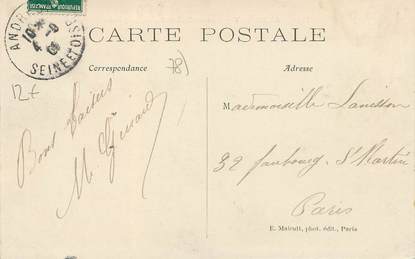 RÉPUBLIQUE FRANÇAISE
SEINE-ET-OISE
CARTE POSTALE
Correspondance
78)
Adresse
12€
Bons baisers
M.
Mademoiselle
32 faubourg St Martin
Paris
E. Malcuit, phot. édit., Paris